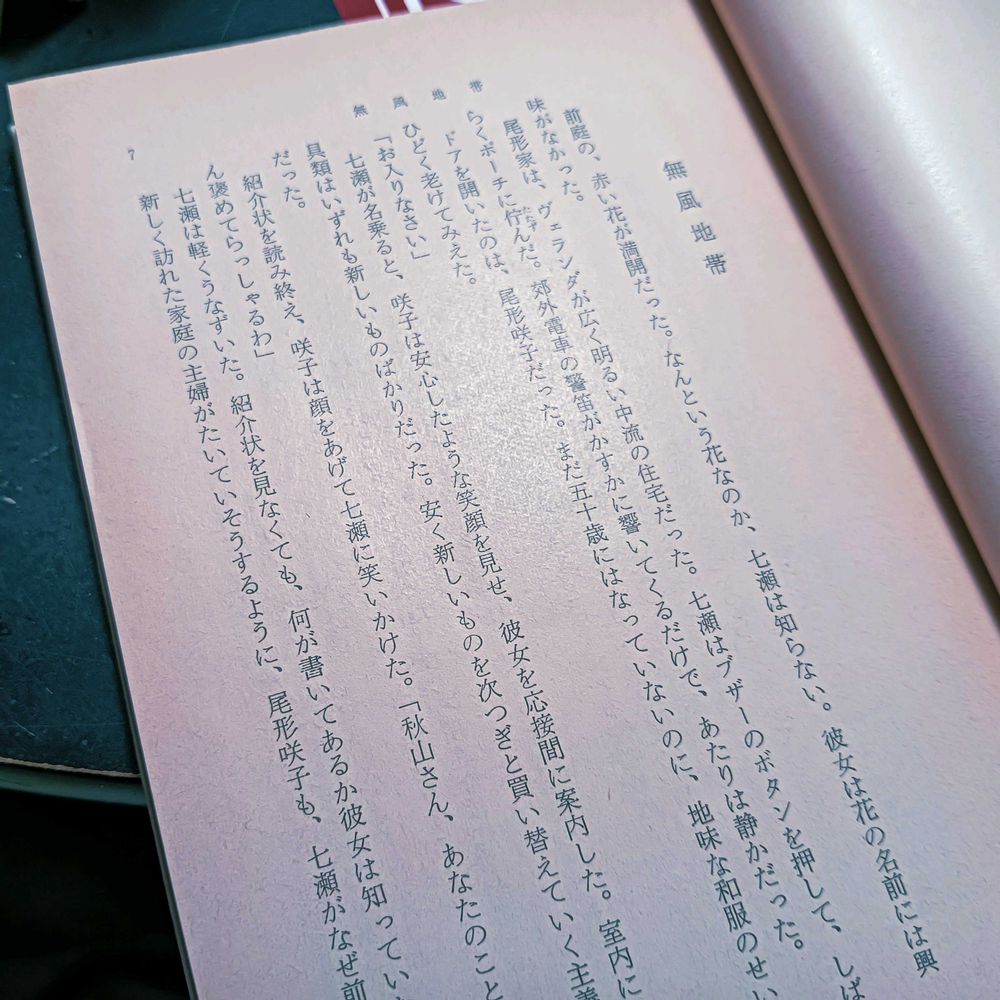 無風地帯
無風地帯
前庭の、赤い花が満開だった。なんという花なのか、七瀬は知らない。彼女は花の名前には興
味がなかった。
尾形家は、ヴェランダが広く明るい中流の住宅だった。七瀬はブザーのボタンを押して、しば
らくポーチに佇んだ。郊外電車の警笛がかすかに響いてくるだけで、あたりは静かだった。
ドアを開いたのは、尾形咲子だった。まだ五十歳にはなっていないのに、地味な和服のせい
ひどく老けてみえた。
「お入りなさい」
七瀬が名乗ると、咲子は安心したような笑顔を見せ、彼女を応接間に案内した。室内に
具類はいずれも新しいものばかりだった。安く新しいものを次つぎと買い替えていく主義
だった。
紹介状を読み終え、咲子は顔をあげて七瀬に笑いかけた。「秋山さん、あなたのこと
ん褒めてらっしゃるわ」
七瀬は軽くうなずいた。紹介状を見なくても、何が書いてあるか彼女は知ってい
新しく訪れた家庭の主婦がたいていそうするように、尾形咲子も、七瀬がなぜ前
7